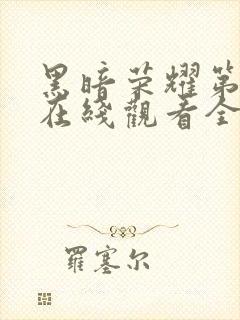 黑暗荣耀第
在线觀看全
羅塞尔